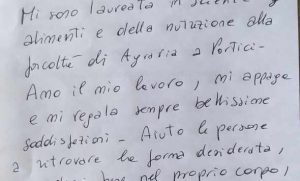 Mi sono laureata in scienze
alimenti e della nutrizione alla
facoltà di Agraria a Portici-
Amo il mio lavoro, mi appaga
e mi regala sempre bellissime
soddisfazioni - Aiuto le persone
a ritrovare la forma desiderata,
nel proprio corpo,